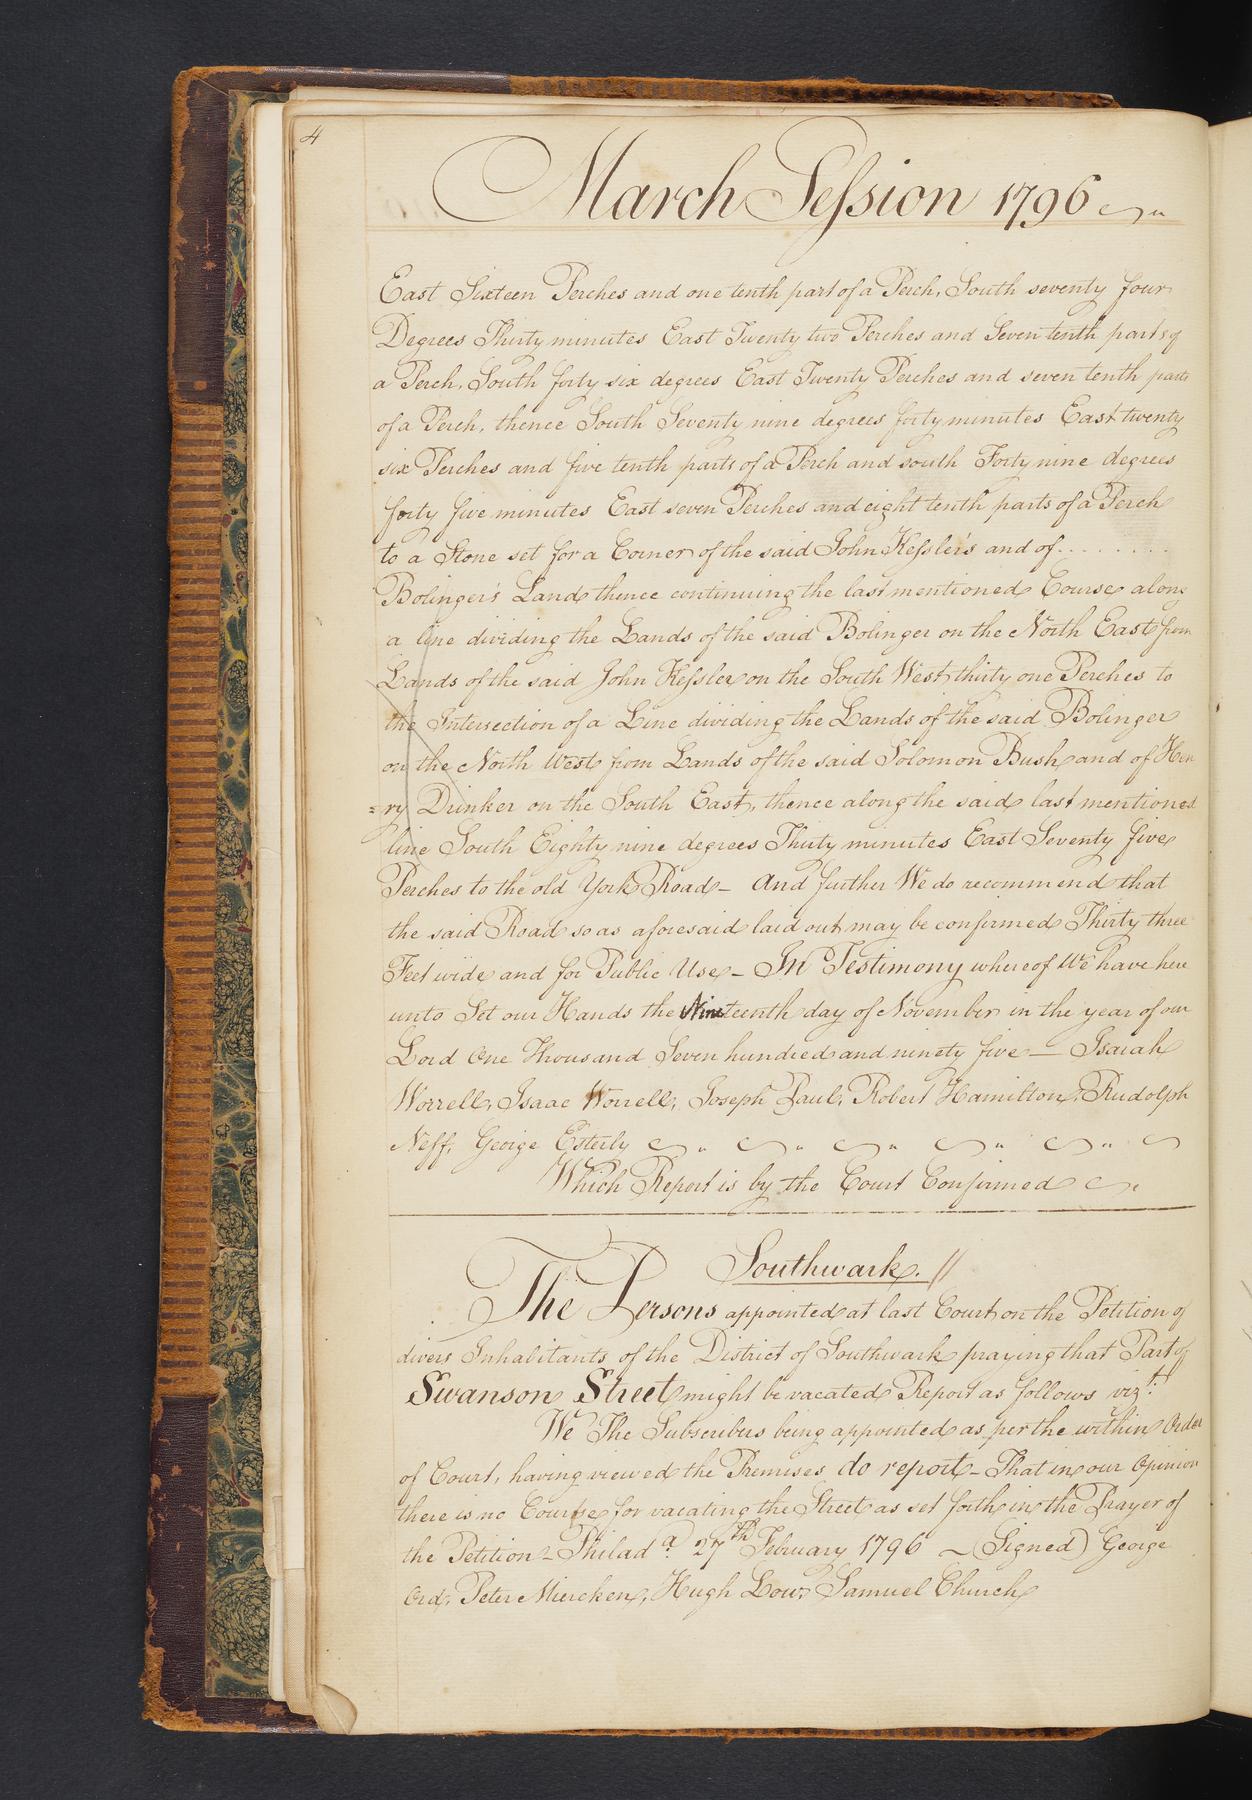 4
March Session 1796
East Sixteen Perches and one tenth part of a Perch, South seventy four
Degrees Thirty minutes East Twenty two Perches and Seven tenth parts of
a Perch, South forty six degrees East Twenty Perches and seven tenth parts
of a Perch, thence South Seventy nine degrees forty minutes East twenty
six Perches and five tenth parts of a Perch and south Forty nine degrees
forty five minutes East seven Perches and eight tenth parts of a Perch
to a Stone set for a Corner of the said John Kessler's and of . . . . . . . .
Bolinger's Land thence continuing the last mentioned Course along
a line dividing the Lands of the said Bolinger on the North East from
Lands of the said John Kessler on the South West thirty one Perches to
the Intersection of a Line dividing the Lands of the said Bolinger
on the North West from Lands of the said Solomon Bush and of Hen
=ry Drinker on the South East, thence along the said last mentioned
line South Eighty nine degrees Thirty minutes East Seventy five
Perches to the old York Road - And further We do recommend that
the said Road so as aforesaid laid out may be confirmed Thirty three
Feet wide and for Public Use - In Testimony whereof We have here
unto Set our Hands the Nineteenth day of November in the year of our
Lord One Thousand Seven hundred and ninety five — Isaiah
Worrell, Isaac Worrell, Joseph Paul, Robert Hamilton, Rudolph
Neff, George Esterly
Which Report is by the Court Confirmed
Southwark. //
The Persons appointed at last Court on the Petition of
divers Inhabitants of the District of Southwark praying that Part of
Swanson Street might be vacated Report as follows vizt:
We The Subscribers being appointed as per the within Order
of Court, having viewed the Premises do report - That in our Opinion
there is no Course for vacating the Street as set forth in the Prayer of
the Petition - Philada. 27th February 1796 - (Signed) George
Ord, Peter Miercken, Hugh Low, Samuel Church